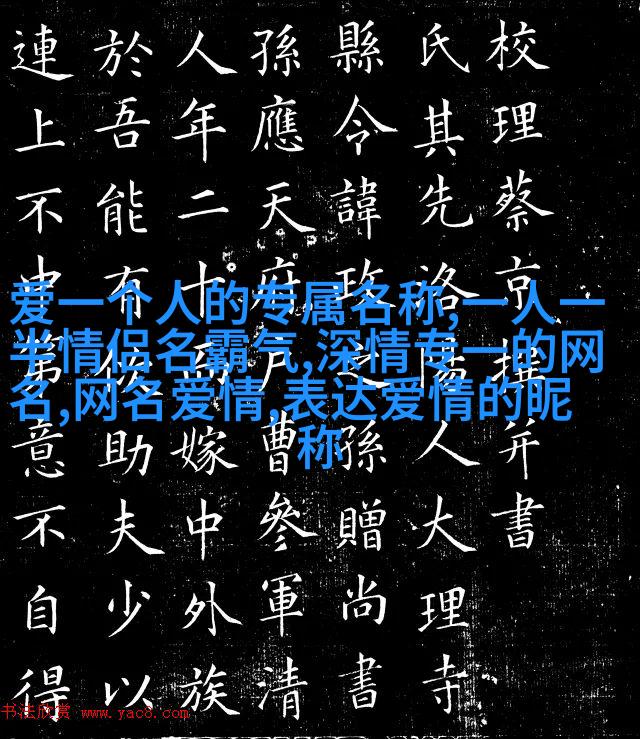 校理蔡京撰并書
氏其先洛陽人大理寺
縣令諱玫之孫贈尚書
孫應天府戶曹參軍清
人年二十而嫁中外族
於吾能有助夫少以
連上不中第意不自得
爱一个人的专属名称,一人一
半情侣名霸气,深情专一的网
名,网名爱情,表达爱情的昵
称
书法欣赏 www.yac8.com